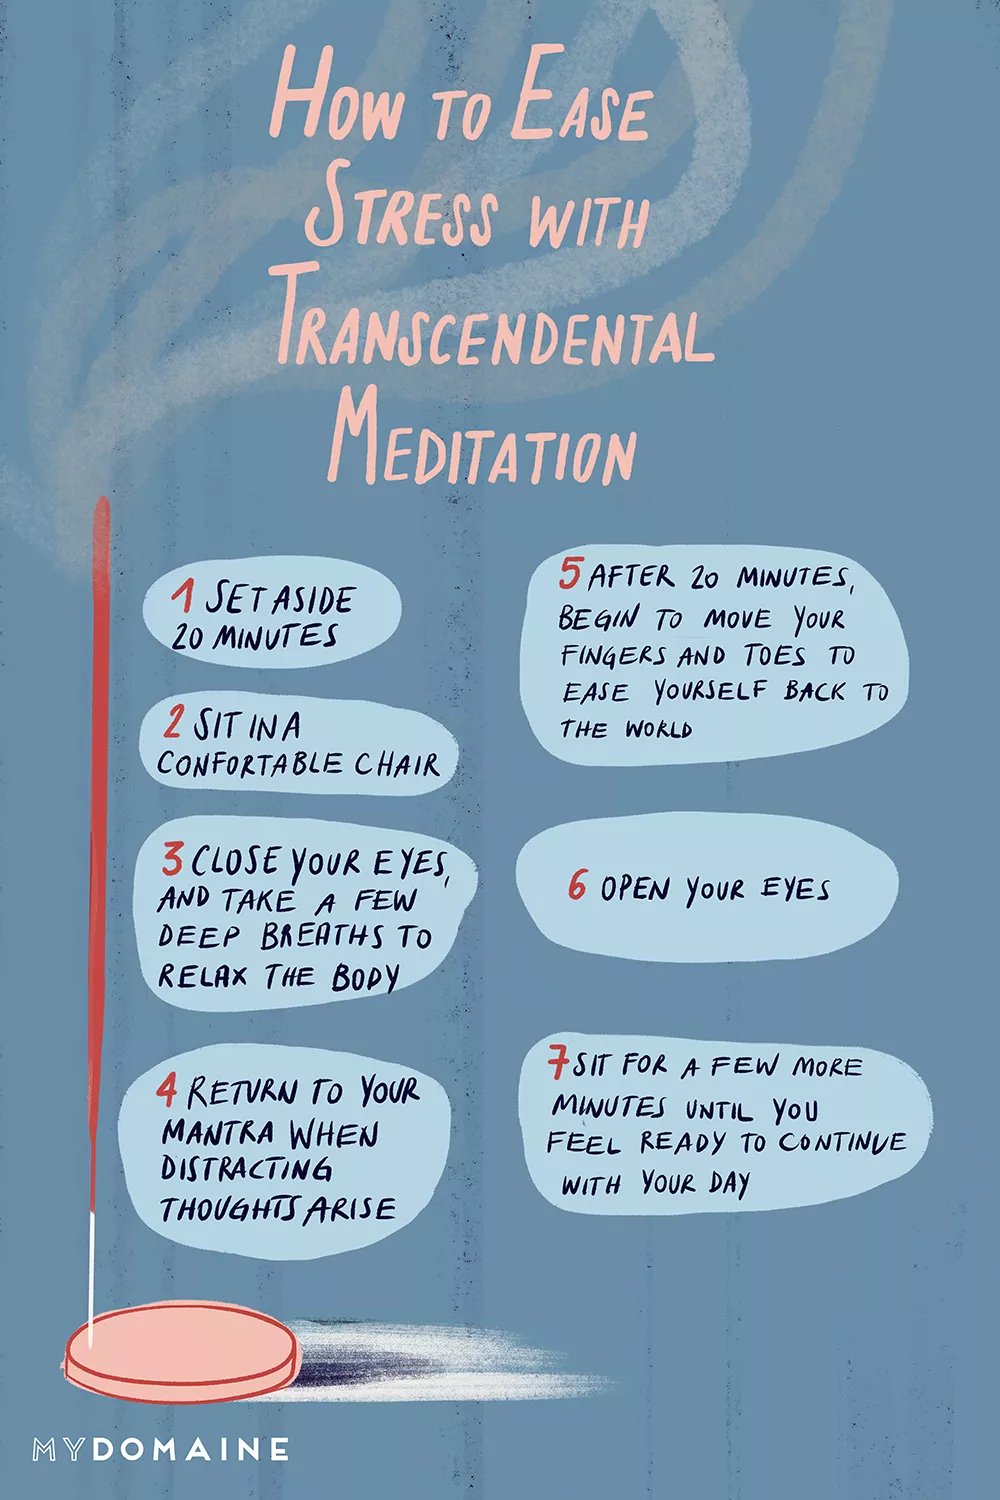 How to Ease
Stress with
Transcendental
Meditation
1 Set aside
20 minutes
2 Sit in a
confortable chair
3 Close your eyes,
and take a few
deep breaths to
relax the body
4 Return to your
mantra when
distracting
thoughts arise
5 After 20 minutes,
begin to move your
fingers and toes to
ease yourself back to
the world
6 Open your eyes
7 Sit for a few more
minutes until you
feel ready to continue
with your day
MYDOMAINE